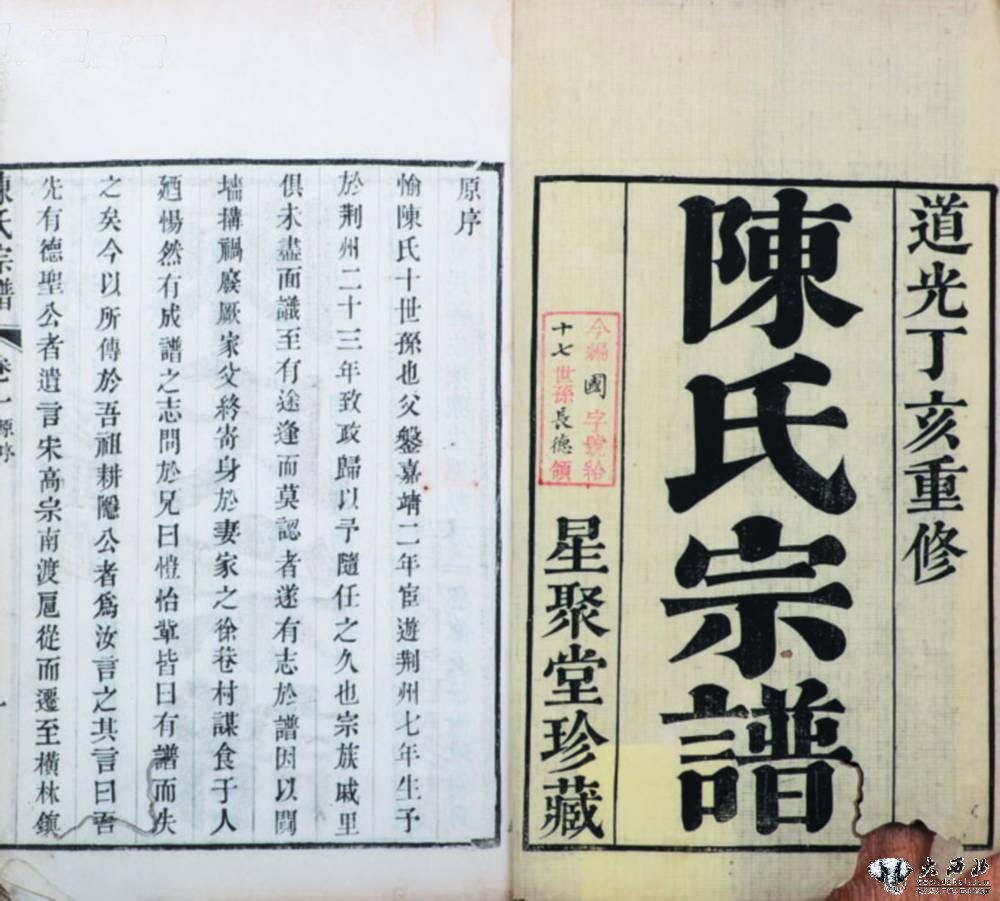 道光丁亥重修
陳氏宗譜
今編國字號給
十七世孫長德領
星聚堂珍藏
原序
愉陳氏十世孫也父盤嘉靖二年宦遊荆州七年生予
於荆州二十三年致政歸以予隨任之久也宗族戚里
俱未盡面識至有途逢而莫認者遂有志於譜因以鬩
墻搆禍廢厥家父終寄身於妻家之徐巷村謀食于人
廼惕然有成譜之志問於兄曰愷怡輩皆曰有譜而失
之矣今以所傳於吾祖耕隱公者爲汝言之其言曰吾
先有德聖公者遺言宋高宗南渡扈從而遷至橫林鎮
陳氏宗譜
卷一
原序
一
大西北